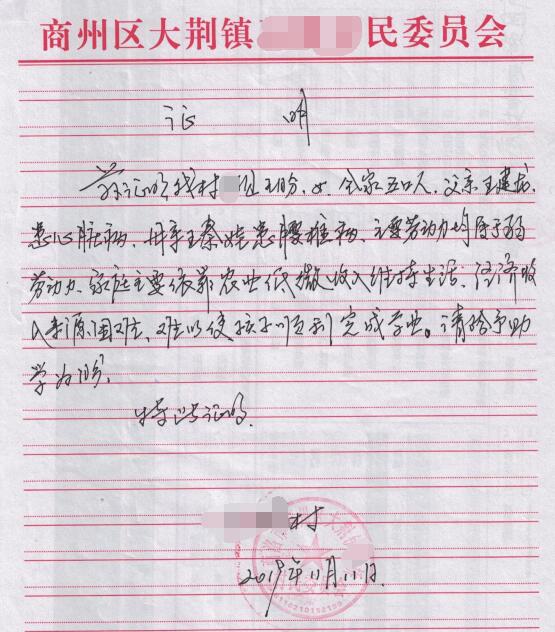 商州区大荆镇 民委员会
证 明
兹证明我村 组王盼，女，全家五口人，父亲王建
患心脏病，母亲王秦娃患腰椎病，主要劳动力均属于弱
劳动力，家庭主要依靠农业低微收入维持生活，经济收
入来源困难，难以使孩子顺利完成学业。请给予助
学为盼，
特此证明
村
2019年11月11日